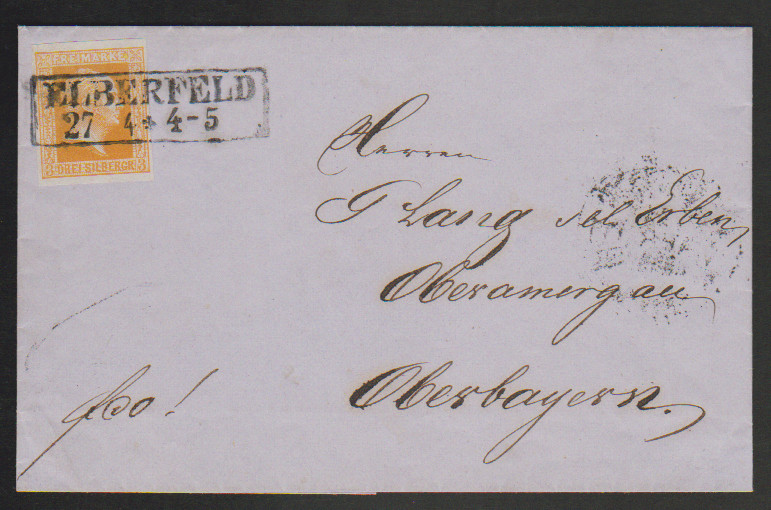 FREIMARKE
ELBERFELD
27 4 * 4-5
3 DREI SILBERGR. 3
Herren
G Lang sel Erben,
Oberamergau
Oberbayern.
fco!